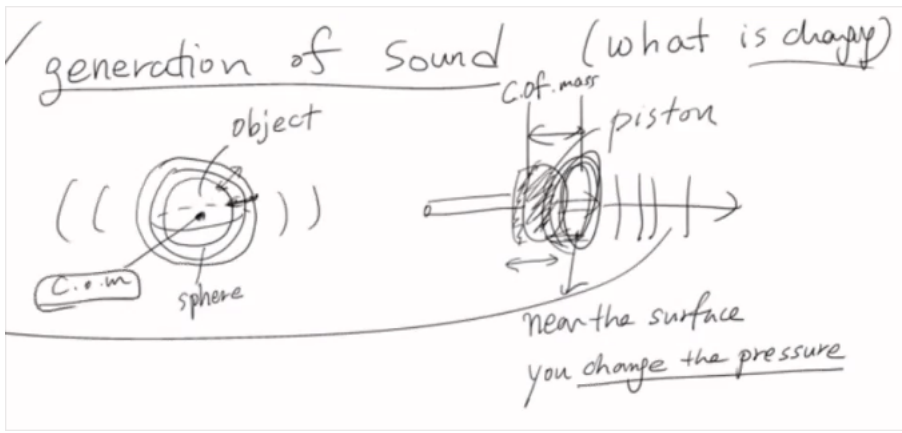 generation of sound (what is changy)
object
c.o.m
sphere
C.of.mass
piston
near the surface
you change the pressure